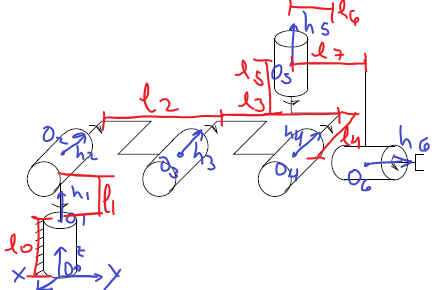 l6
h5
l7
l5
O5
l2
l3
O2
h2
O3
h3
h4
O4
l4
h6
O6
h1
l1
O1
l0
z
X
O
Y